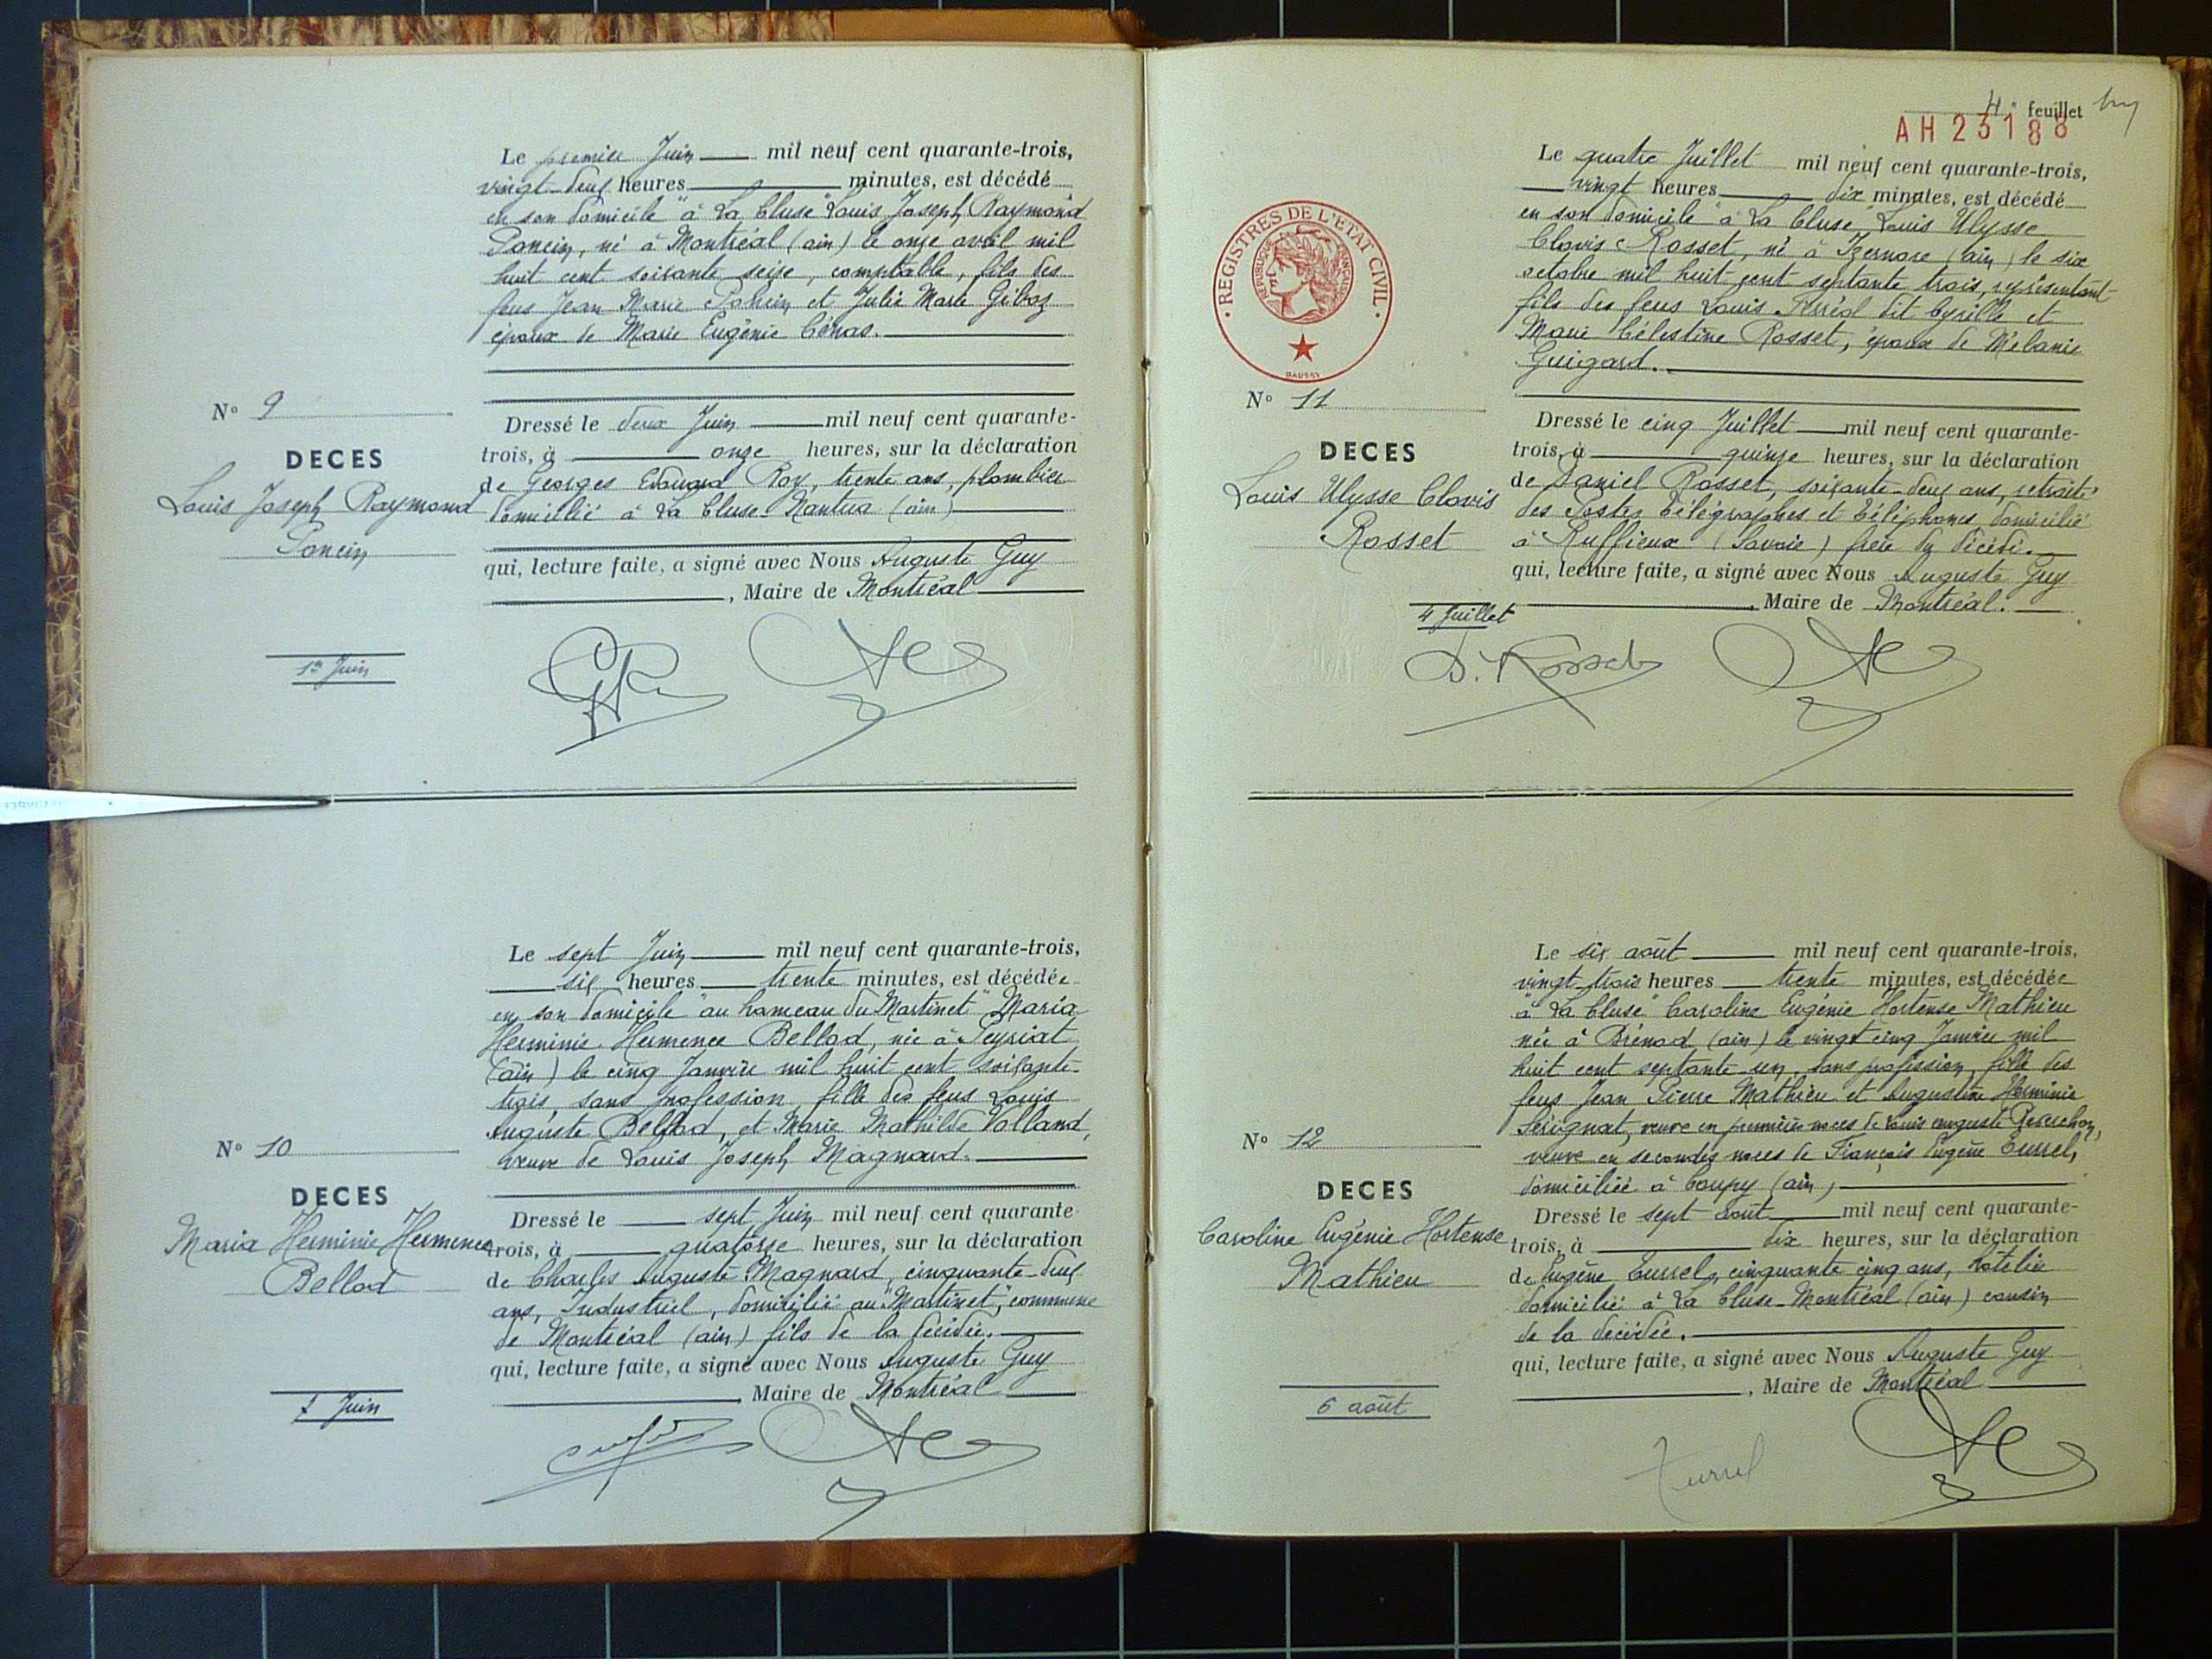 Le premier Juin mil neuf cent quarante-trois,
vingt-deux heures minutes, est décédé
en son domicile "à La Cluse" Louis Joseph Raymond
Poncin, né à Montréal (ain) le onze avril mil
huit cent soixante seize, comptable, fils des
feus Jean Marie Poncin et Julie Marie
époux de Marie Eugénie
N° 9
DECES
Louis Joseph Raymond
Poncin
Dressé le deux Juin mil neuf cent quarante-
trois, à onze heures, sur la déclaration
de Georges Edouard Roy, trente ans, plombier
domicilié à La Cluse-Nantua (ain)
qui, lecture faite, a signé avec Nous Auguste Guy
, Maire de Montréal
1er Juin
Le sept Juin mil neuf cent quarante-trois,
six heures trente minutes, est décédée
en son domicile "au hameau du Martinet" Maria
Herminie Hermence Bellod, née à Peyriat
(ain) le cinq Janvier mil huit cent soixante-
trois, sans profession, fille des feus Louis
Auguste Bellod, et Marie Mathilde Volland,
veuve de Louis Joseph Magnard.
N° 10
DECES
Maria Herminie Hermence
Bellod
Dressé le sept Juin mil neuf cent quarante
trois, à quatorze heures, sur la déclaration
de Charles Auguste Magnard, cinquante-deux
ans, Industriel, domicilié au "Martinet", commune
de Montréal (ain) fils de la décédée.
qui, lecture faite, a signé avec Nous Auguste Guy
Maire de Montréal
7 Juin
4e feuillet
AH 23188
REGISTRES DE L'ETAT CIVIL
REPUBLIQUE FRANÇAISE
DAUSSY
Le quatre Juillet mil neuf cent quarante-trois,
vingt heures dix minutes, est décédé
en son domicile "à La Cluse" Louis Ulysse
Clovis Rosset, né à Izernore (ain) le six
octobre mil huit cent septante trois, représentant
fils des feus Louis Ferréol dit Cyrille et
Marie Célestine Rosset, époux de Mélanie
Guigard.
N° 11
DECES
Louis Ulysse Clovis
Rosset
Dressé le cinq Juillet mil neuf cent quarante-
trois, à quinze heures, sur la déclaration
de Daniel Rosset, soixante-deux ans, retraité
des Postes Télégraphes et Téléphones, domicilié
à Ruffieux (Savoie) frère du décédé.
qui, lecture faite, a signé avec Nous Auguste Guy
Maire de Montréal.
4 Juillet
D. Rosset
Le six août mil neuf cent quarante-trois,
vingt-trois heures trente minutes, est décédée
"à La Cluse" Caroline Eugénie Hortense Mathieu
née à Brénod (ain) le vingt cinq Janvier mil
huit cent septante-un, sans profession, fille des
feus Jean Pierre Mathieu et Augustine Herminie
Sérignat, veuve en premières noces de Louis Auguste
veuve en secondes noces de François Eugène Turrel,
domiciliée à Coupy (ain)
N° 12
DECES
Caroline Eugénie Hortense
Mathieu
Dressé le sept août mil neuf cent quarante-
trois, à dix heures, sur la déclaration
de Eugène Turrel, cinquante cinq ans, hôtelier
domicilié à La Cluse-Montréal (ain) cousin
de la décédée.
qui, lecture faite, a signé avec Nous Auguste Guy
, Maire de Montréal
6 août
Turrel